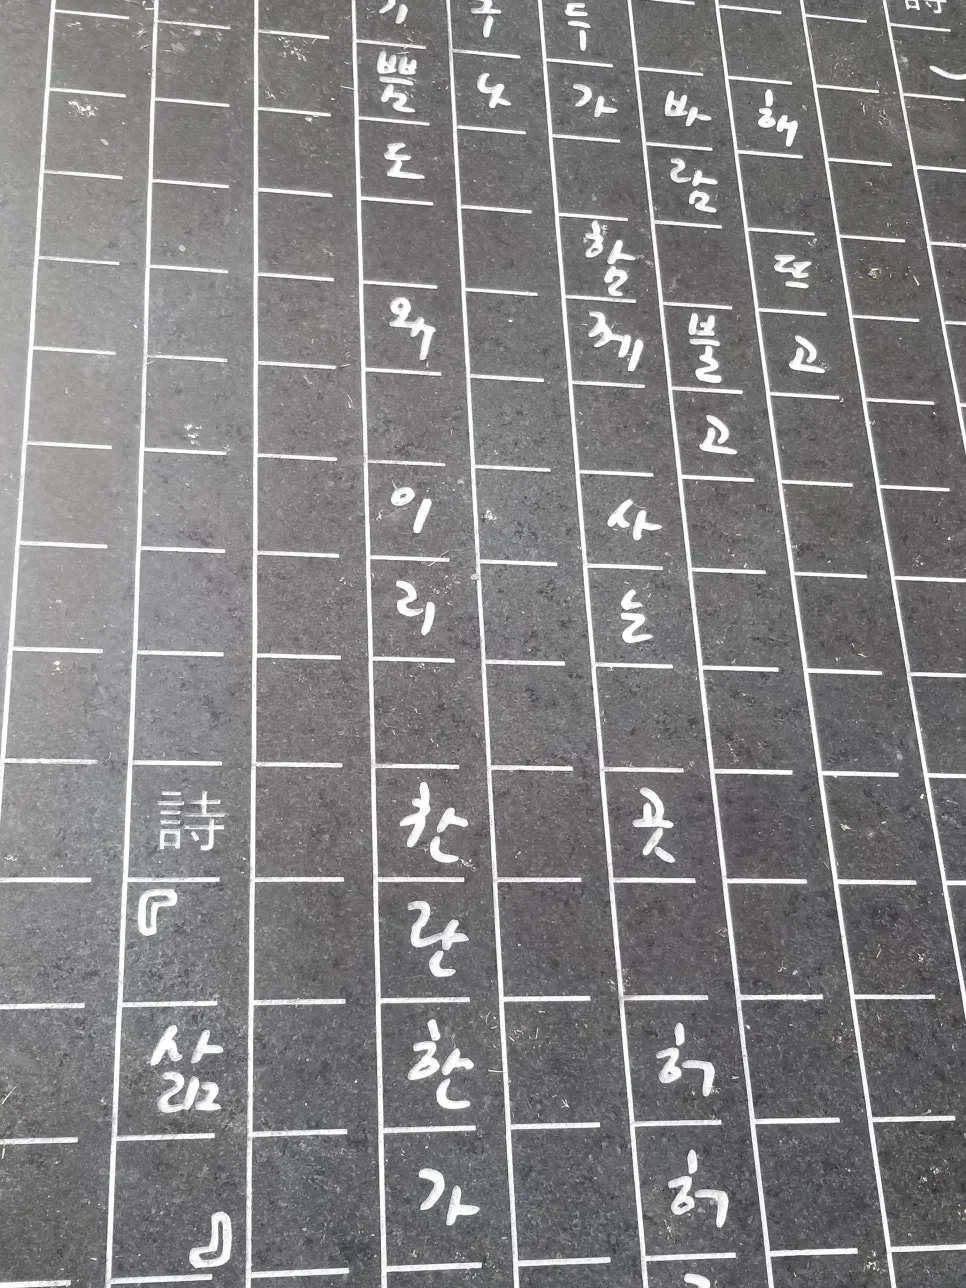 詩
해 뜨고
바람 불고
두가 함께 사는 곳 허허
구나
기쁨도 왜 이리 찬란한가
詩『삶』